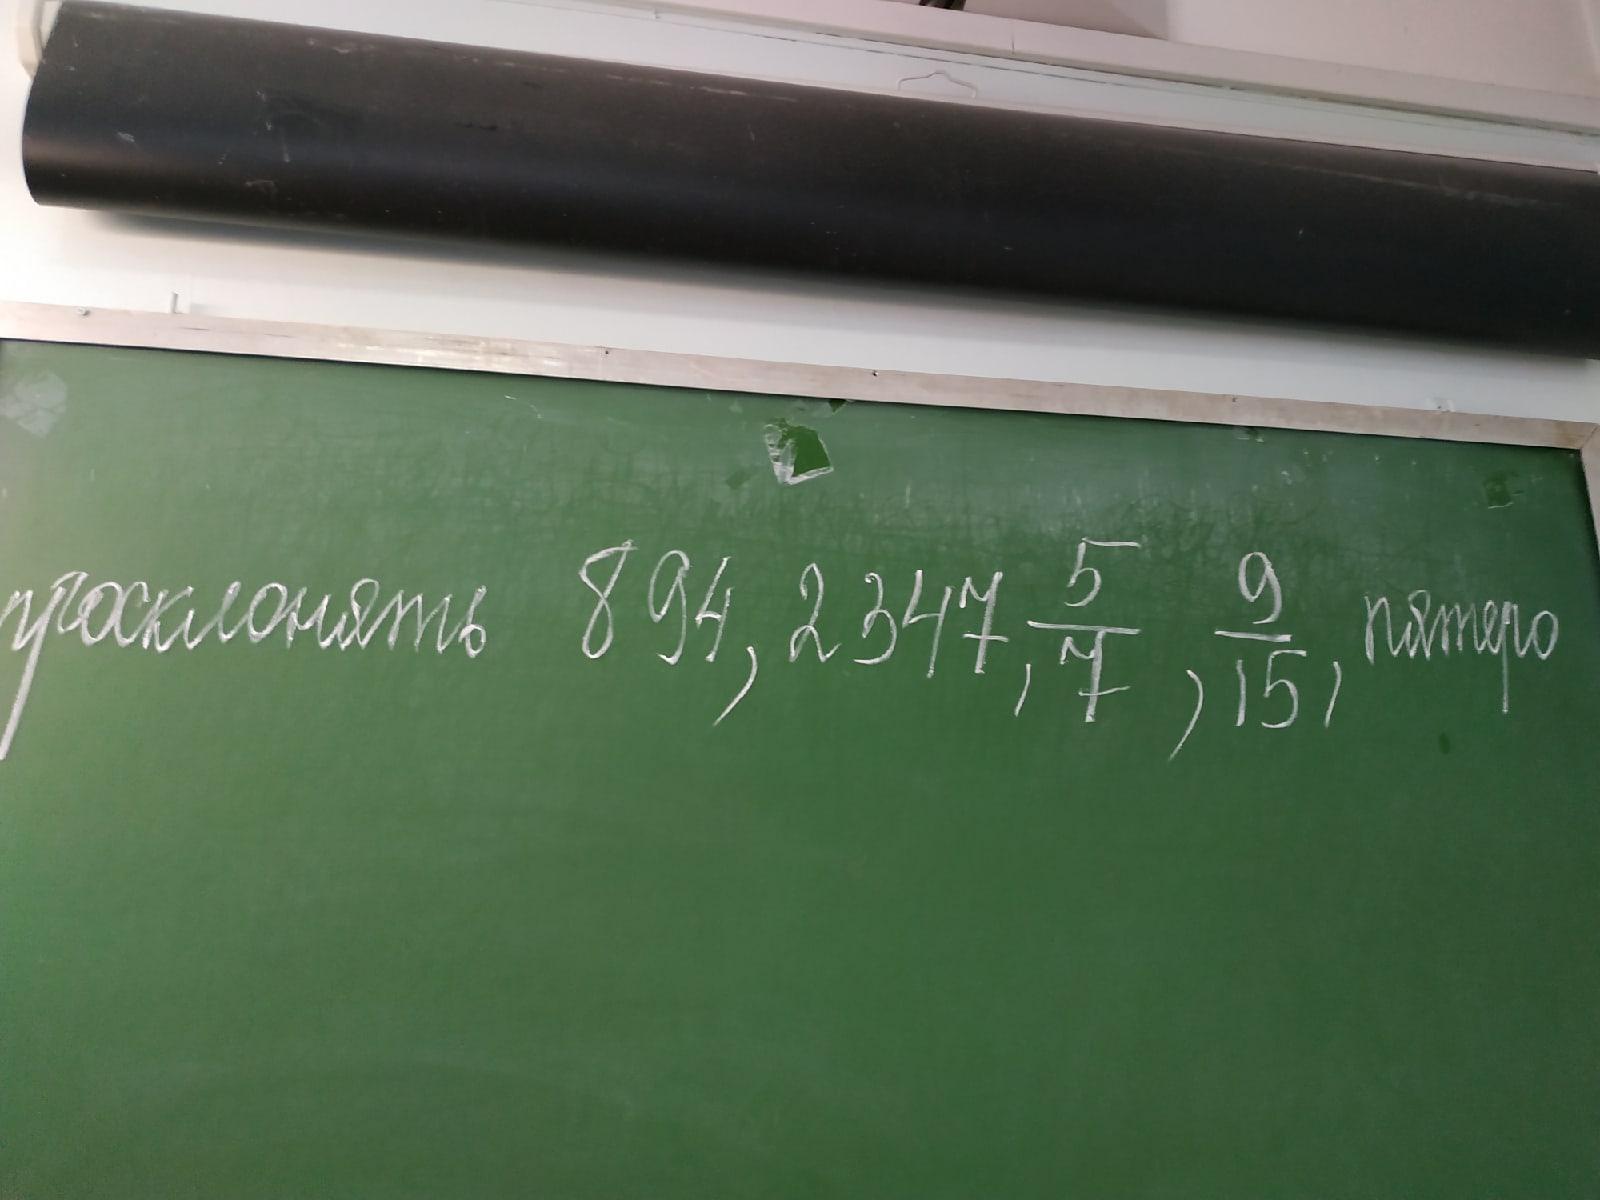 просклонять 894, 2347, 5/7, 9/15, пятеро